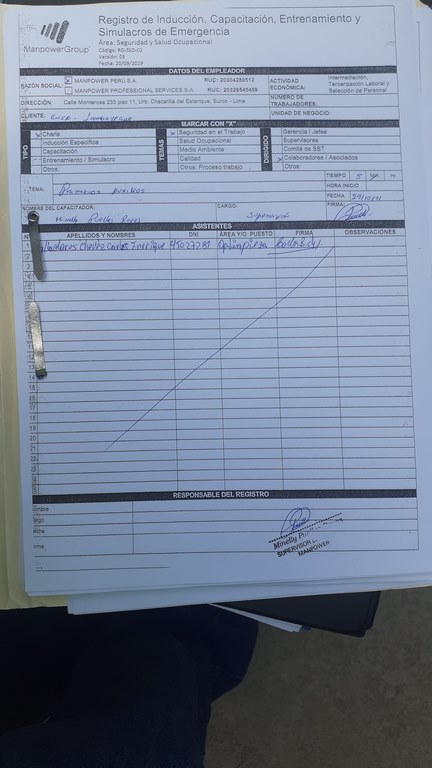 ManpowerGroup
Registro de Inducción, Capacitación, Entrenamiento y
Simulacros de Emergencia
Área: Seguridad y Salud Ocupacional
Código: RG-SSO-02
Versión: 03
Fecha: 20/09/2019
DATOS DEL EMPLEADOR
RAZÓN SOCIAL: MANPOWER PERÚ S.A. RUC: 20304289512
MANPOWER PROFESSIONAL SERVICES S.A. RUC:
ACTIVIDAD ECONÓMICA: Intermediación, Tercerización Laboral y Selección de Personal
DIRECCIÓN: Calle Monterosa 233 piso 11, Urb. Chacarilla del Estanque, Surco - Lima
NÚMERO DE TRABAJADORES:
CLIENTE:
UNIDAD DE NEGOCIO:
MARCAR CON "X"
TIPO
x Charla
Inducción Específica
Capacitación
Entrenamiento / Simulacro
Otros:
TEMAS
x Seguridad en el Trabajo
Salud Ocupacional
Medio Ambiente
Calidad
Otros: Proceso trabajo
DIRIGIDO
Gerencia / Jefes
Supervisores
Comité de SST
x Colaboradores / Asociados
Otros:
TIEMPO 5
HORA INICIO
TEMA: Primeros Auxilios
FECHA
NOMBRE DEL CAPACITADOR:
CARGO:
FIRMA:
ASISTENTES
APELLIDOS Y NOMBRES DNI ÁREA Y/O PUESTO FIRMA OBSERVACIONES
Chavez Carlos Enrique 45027281 Op. limpieza
13
14
15
16
17
18
19
20
21
22
RESPONSABLE DEL REGISTRO
Minelly
SUPERVISOR
MANPOWER